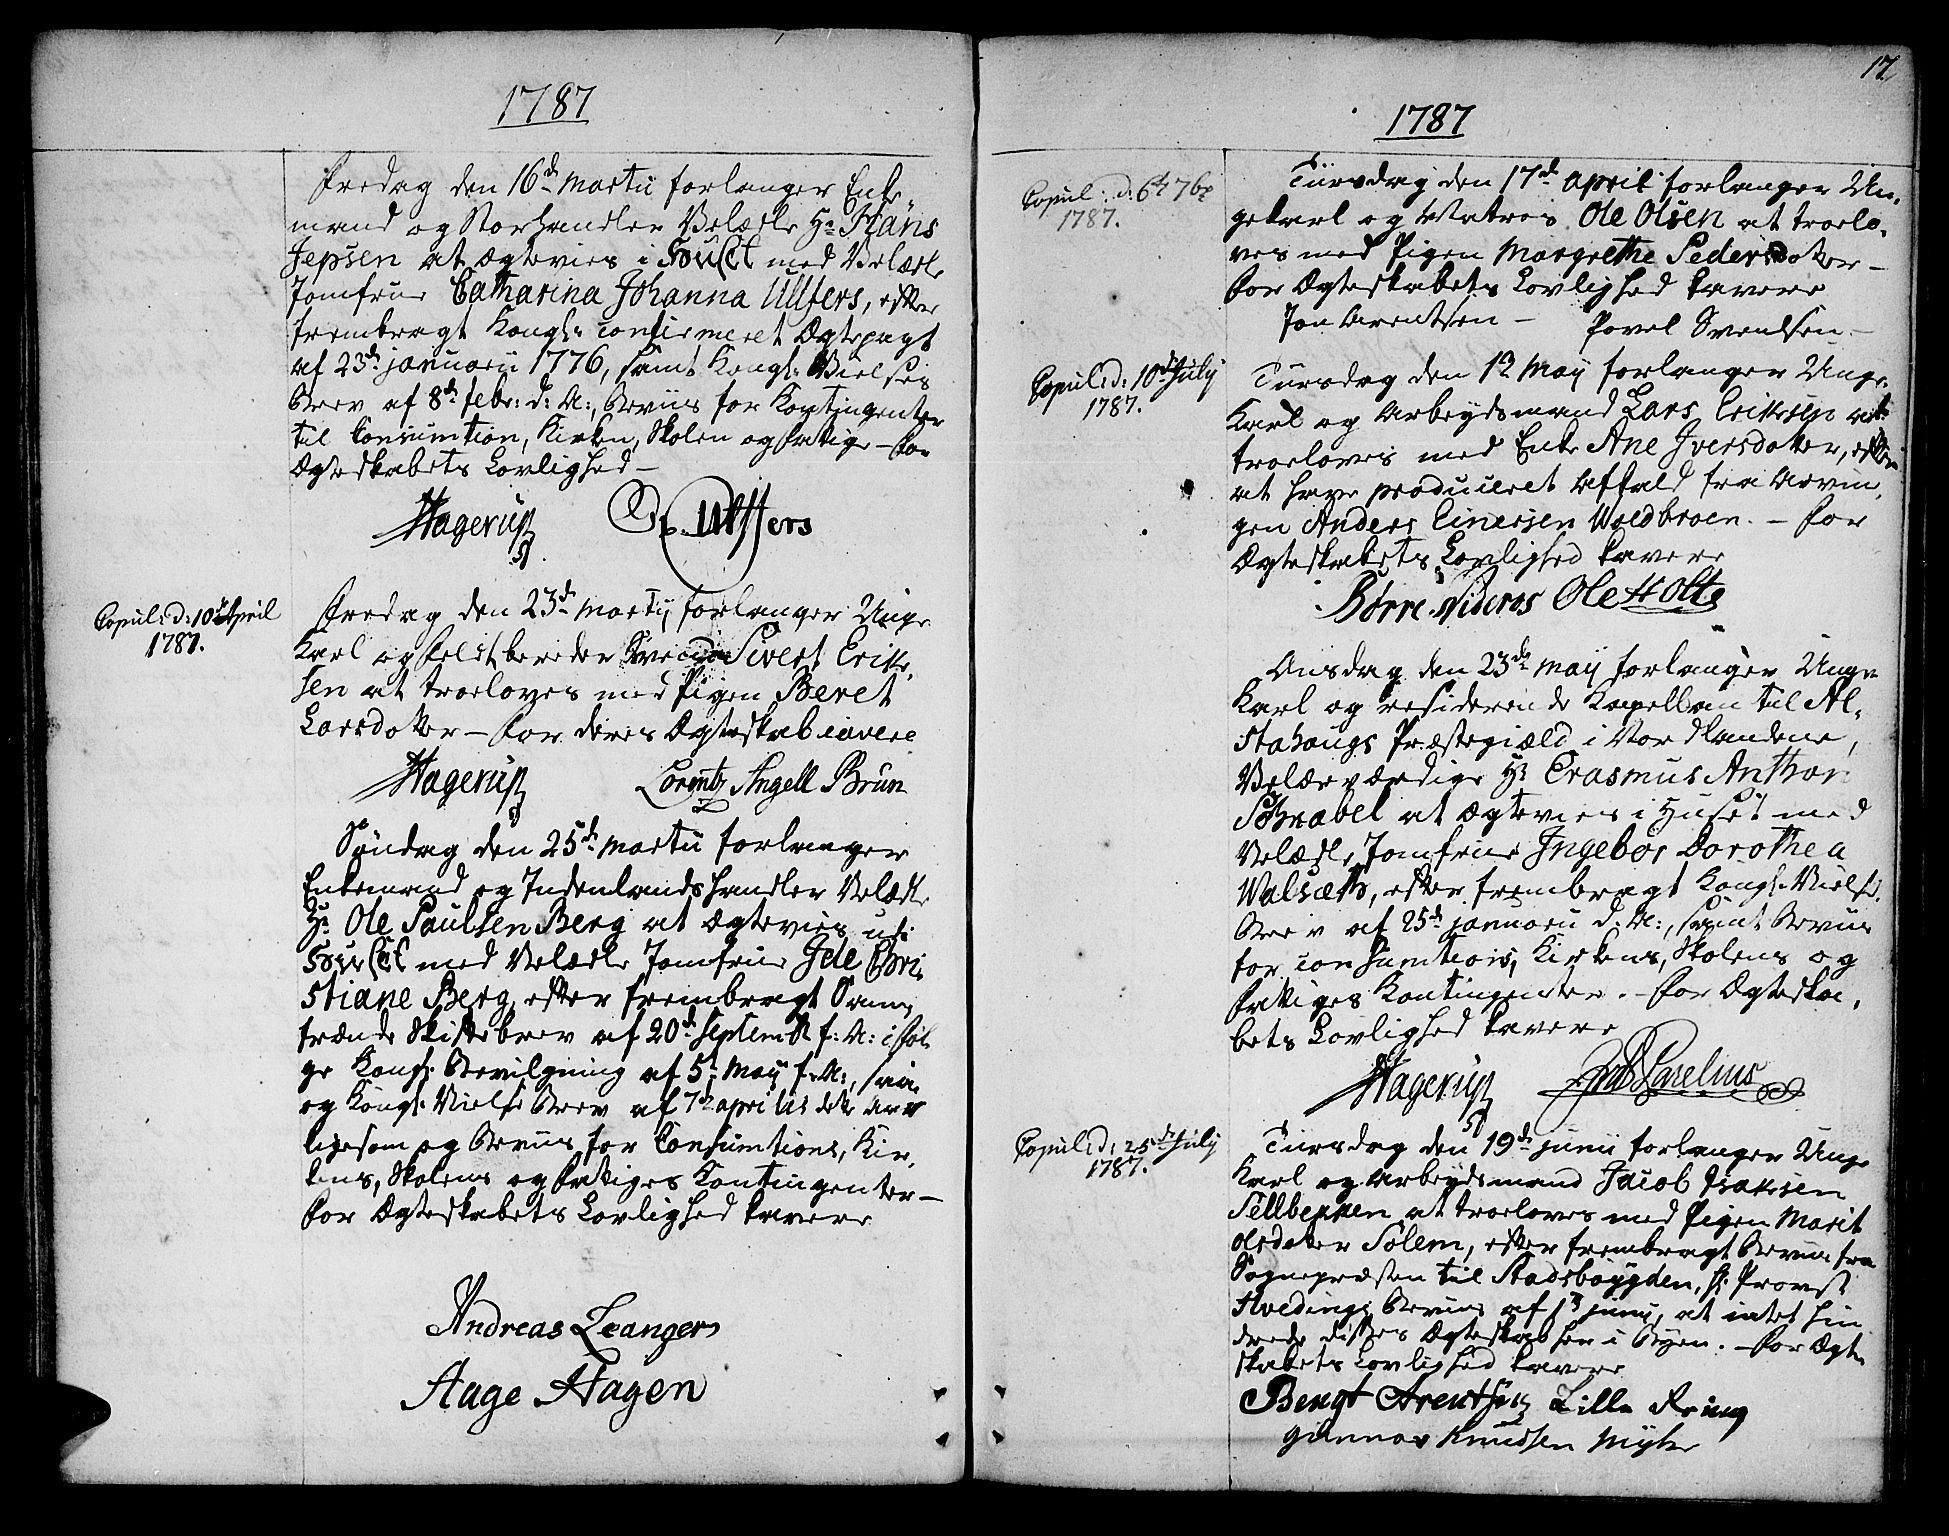 1787
Fredag den 16de Martii forlanger Enke-
mand og Storhandler Velædle Hr Hans
Jepsen at ægtevies i Huset med Velædle
Jomfrue Catharina Johanna Ulffers, efter
frembragt Kongl: confirmeret Ægtepagt
af 23de januarii 1776, samt Kongl: Vielses
Brev af 8de febr: d: A:, Beviis for Kontingenter
til Consumtion, Kirken, Skolen og Fattige - For
Ægteskabets Lovlighed -
Hagerup Ulffers
Copul: d: 10de April
1787.
Fredag den 23de Martii forlanger Unge
Karl og Feldtbereder Svend Sivert Erik-
sen at troeloves med Pigen Beret
Larsdatter - For deres Ægteskab cavere
Hagerup Lorentz Angell Brun
Søndag den 25de Martii forlanger
Enkemand og Indenlandshandler Velædle
Hr Ole Paulsen Berg at ægtevies udi
Huset med Velædle Jomfrue Ide Chri-
stiane Berg, efter frembragt Saum-
frænde Skiftebrev af 20de Septembr f: A: i føl-
ge Kongl: Bevilgning af 5te Maij f: A:, saa
og Kongl: Vielse Brev af 7de aprilis dette Aar
ligesom og Beviis for Consumtions, Kir-
kens, Skolens og Fattiges Kontingenter -
For Ægteskabets Lovlighed kavere
Andreas Leanger
Aage Hagen
17
1787
Copul: d: 6te 7br
1787.
Tiirsdag den 17de april forlanger Un-
gekarl og Matros Ole Olsen at troelo-
ves med Pigen Margrethe Pedersdatter -
For Ægteskabets Lovlighed kavere
Jon Arentsen - Povel Svendsen -
Copul: d: 10de July
1787.
Tiirsdag den 12 Maij forlanger Unge
Karl og Arbeydsmand Lars Eriksen at
troeloves med Enke Ane Iversdatter, efter
at have produceret Affald fra Arvin-
gen Anders Einersen Woldbroen. - For
Ægteskabets Lovlighed kavere
Børre Nideros Ole Holte
Onsdag den 23de Maij forlanger Unge
Karl og residerende Kapellan til Al-
stahougs Præstegiæld i Nordlandene,
Velærværdige Hr Erasmus Anthon
Schnabel at ægtevies i Huset med
Velædle Jomfrue Ingebor Dorothea
Walseth, efter frembragt Kongl: Vielse
Brev af 25de januarii d: A:, samt Beviis
for consumtions, Kirkens, Skolens og
Fattiges Kontingenter. - For Ægteska-
bets Lovlighed kavere
Hagerup Parelius
Copul: d: 25de July
1787.
Tiirsdag den 19de junii forlanger Unge
Karl og Arbeydsmand Jacob Isaksen
Sellbekken at troeloves med Pigen Marit
Olsdatter Solem, efter frembragt Beviis fra
Sognepræsten til Stadsbøygden, Hr Provst
Hvedings Beviis af 1te junii, at intet hin
drede disses Ægteskab her i Byen. - For Ægte
skabets Lovlighed kavere
Bengt Arentsen Lille Røning
Gunnar Knudsen Myhr